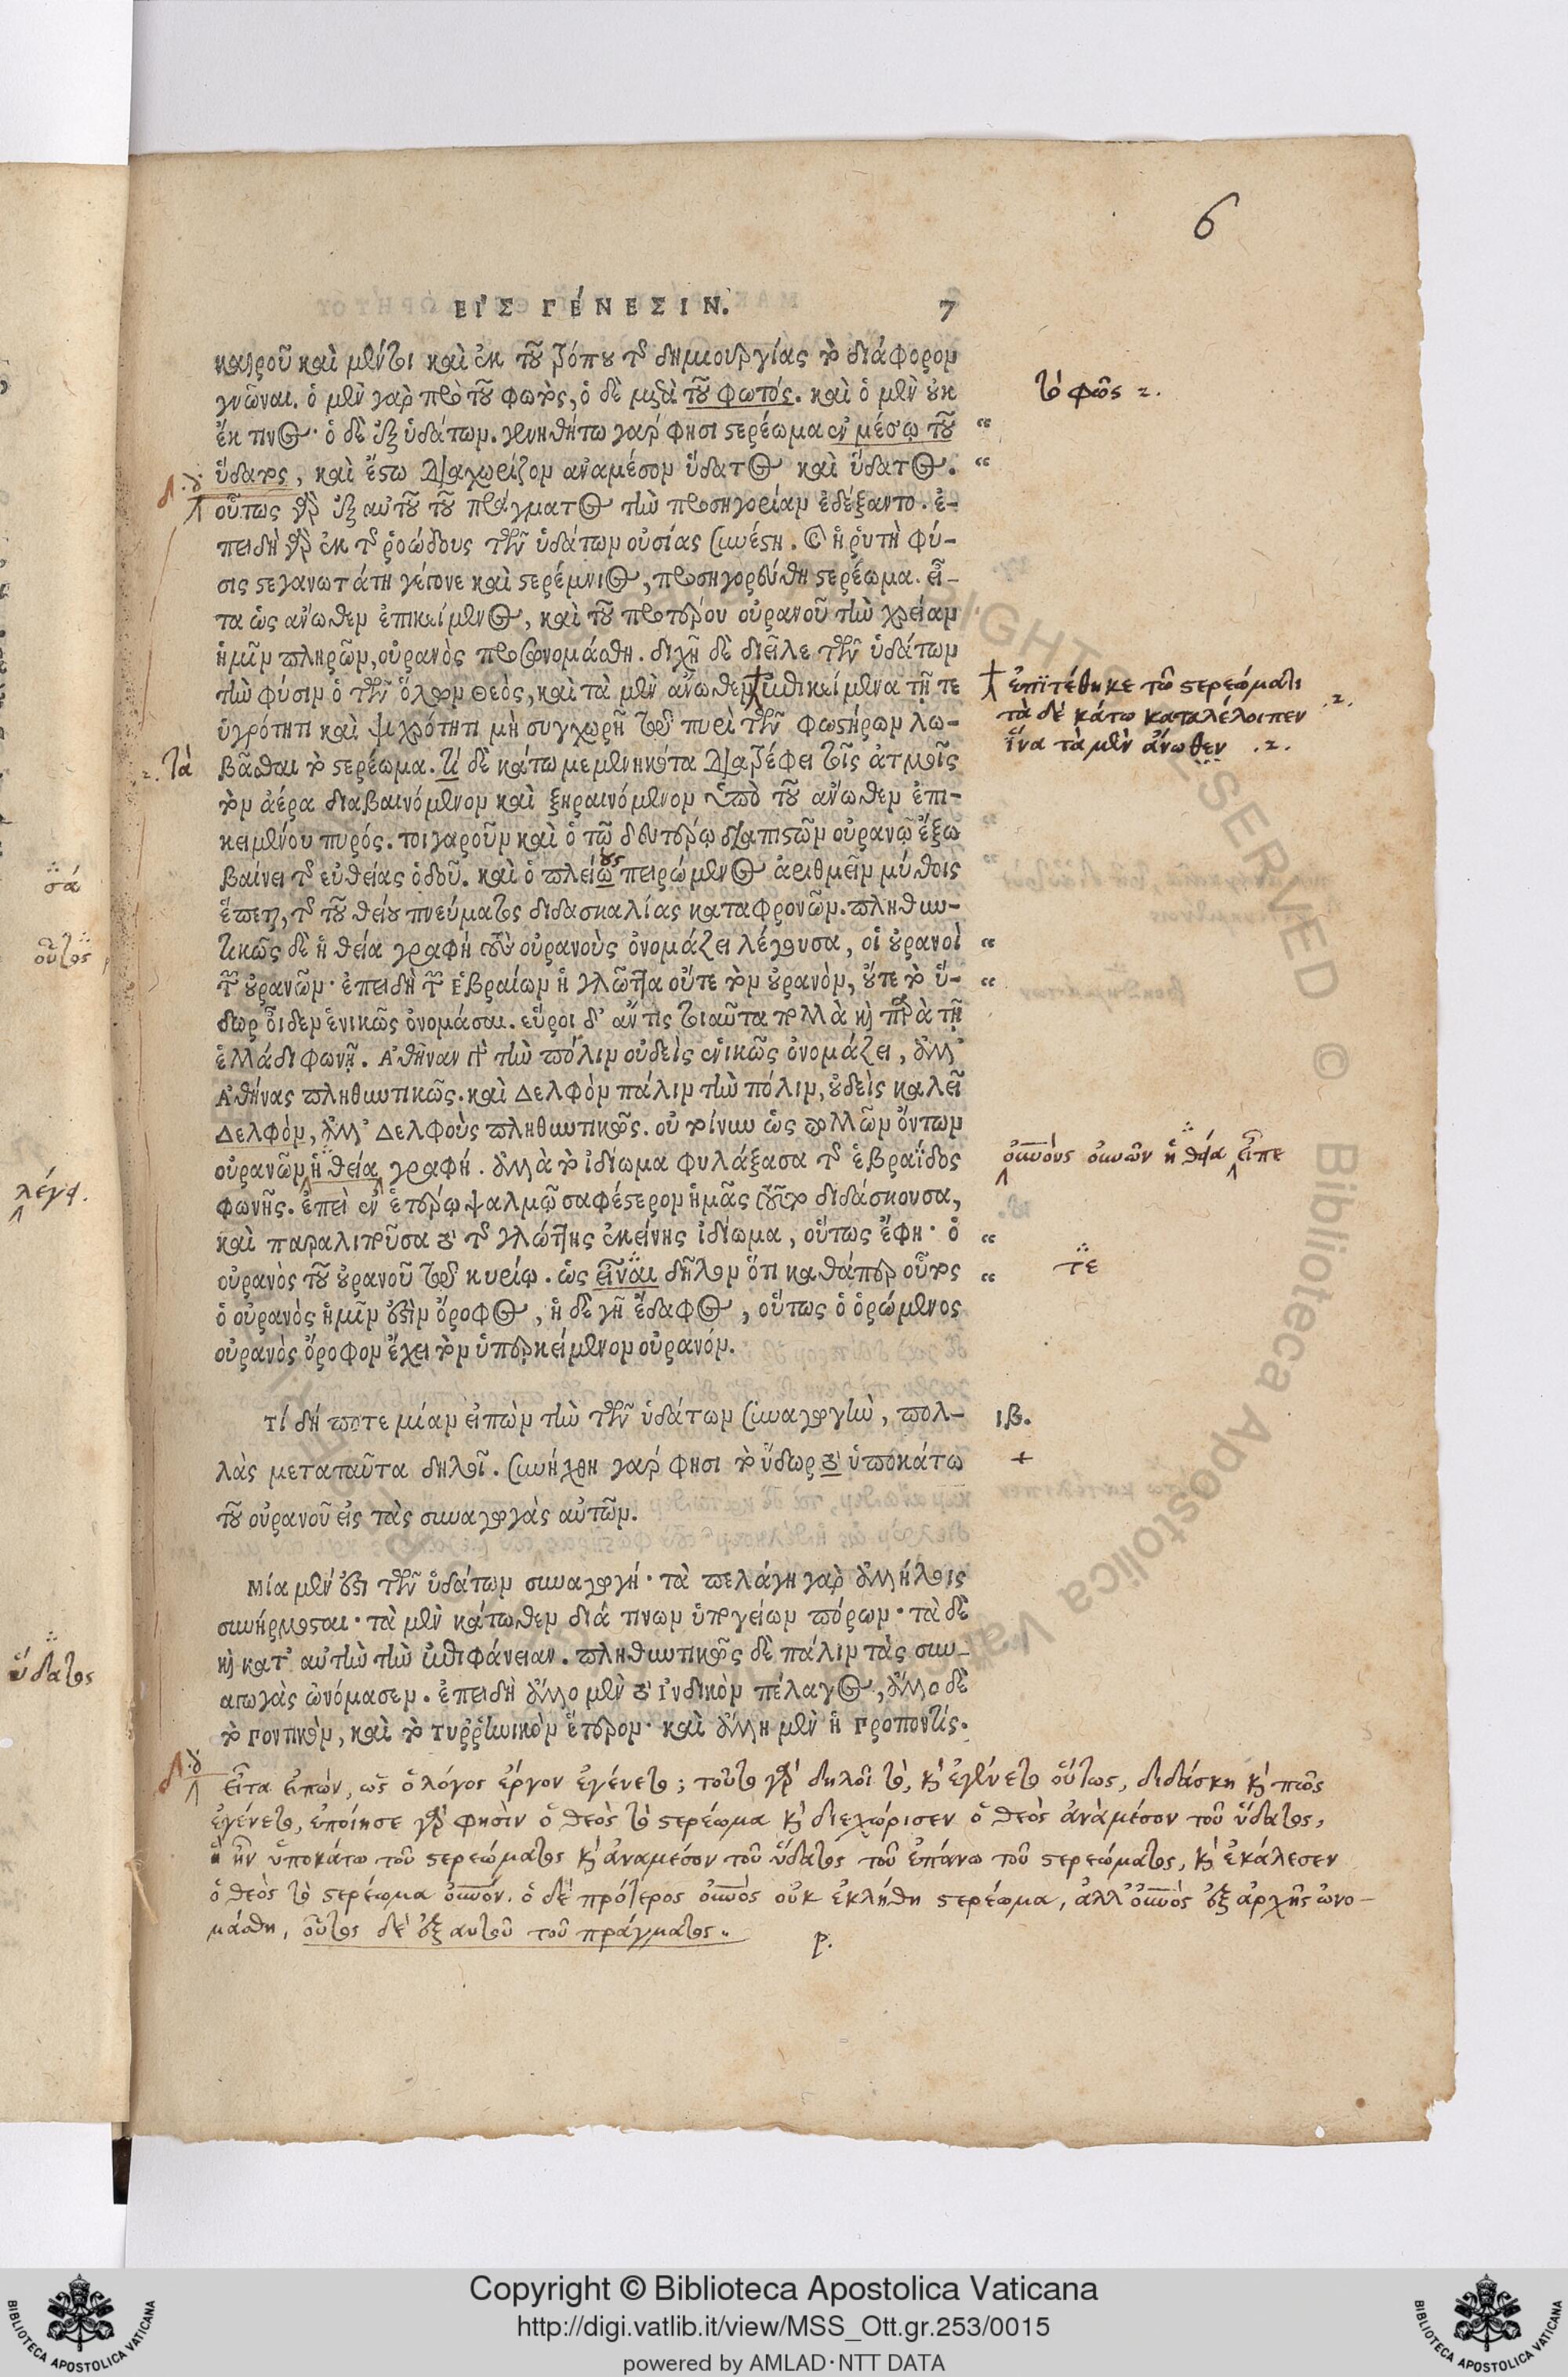 6
ΕἸΣ ΓΈΝΕΣΙΝ. 7
καιροῦ καὶ μέντοι καὶ ἐκ τοῦ τρόπου τῆς δημιουργίας τὸ διάφορον
γνῶναι. ὁ μὲν γὰρ πρὸ τοῦ φωτὸς, ὁ δὲ μετὰ τοῦ φωτός. καὶ ὁ μὲν οὐκ
ἔκ τινος· ὁ δὲ ἐξ ὑδάτων. γενηθήτω γάρ φησι στερέωμα ἐν μέσῳ τοῦ “
ὕδατος, καὶ ἔστω διαχωρίζον ἀναμέσον ὕδατος καὶ ὕδατος. “
οὕτως γὰρ ἐξ αὐτοῦ τοῦ πράγματος τὴν προσηγορίαν ἐδέξαντο. ἐ-
πειδὴ γὰρ ἐκ τῆς ῥοώδους τῶν ὑδάτων οὐσίας συνέστη. καὶ ἡ ῥυτὴ φύ-
σις στεγανωτάτη γέγονε καὶ στερέμνιος, προσηγορεύθη στερέωμα. εἶ-
τα ὡς ἄνωθεν ἐπικείμενος, καὶ τοῦ προτέρου οὐρανοῦ τὴν χρείαν
ἡμῖν πληρῶν, οὐρανὸς προσωνομάσθη. διχῆ δὲ διεῖλε τῶν ὑδάτων
τὴν φύσιν ὁ τῶν ὅλων θεὸς, καὶ τὰ μὲν ἄνωθεν ἐπικείμενα τῇ τε
ὑγρότητι καὶ ψυχρότητι μὴ συγχωρῇ τῷ πυρὶ τῶν φωστήρων λω-
βᾶσθαι τὸ στερέωμα. τὰ δὲ κάτω μεμενηκότα διατρέφει τοῖς ἀτμοῖς
τὸν ἀέρα διαβαινόμενον καὶ ξηραινόμενον ὑπὸ τοῦ ἄνωθεν ἐπι-
κειμένου πυρός. τοιγαροῦν καὶ ὁ τῷ δευτέρῳ διαπιστῶν οὐρανῷ ἔξω
βαίνει τῆς εὐθείας ὁδοῦ. καὶ ὁ πλείω πειρώμενος ἀριθμεῖν μύθοις
ἕπεται, τῆς τοῦ θείου πνεύματος διδασκαλίας καταφρονῶν. πληθυν-
τικῶς δὲ ἡ θεία γραφὴ τοὺς οὐρανοὺς ὀνομάζει λέγουσα, οἱ οὐρανοὶ “
τῶν οὐρανῶν· ἐπειδὴ τῶν Ἑβραίων ἡ γλῶττα οὔτε τὸν οὐρανὸν, οὔτε τὸ ὕ- “
δωρ οἶδεν ἑνικῶς ὀνομάσαι. εὕροι δ’ ἄν τις τοιαῦτα πολλὰ καὶ παρὰ τῇ
ἑλλάδι φωνῇ. Ἀθῆναν γὰρ τὴν πόλιν οὐδεὶς ἑνικῶς ὀνομάζει, ἀλλ’
Ἀθήνας πληθυντικῶς. καὶ Δελφὸν πάλιν τὴν πόλιν, οὐδεὶς καλεῖ
Δελφὸν, ἀλλ’ Δελφοὺς πληθυντικῶς. οὐ τοίνυν ὡς πολλῶν ὄντων
οὐρανῶν ἡ θεία γραφή. ἀλλὰ τὸ ἰδίωμα φυλάξασα τῆς ἑβραΐδος
φωνῆς. ἐπεὶ ἐν ἑτέρῳ ψαλμῷ σαφέστερον ἡμᾶς τοῦτο διδάσκουσα,
καὶ παραλιποῦσα τὸ τῆς γλώττης ἐκείνης ἰδίωμα, οὕτως ἔφη· ὁ “
οὐρανὸς τοῦ οὐρανοῦ τῷ κυρίῳ. ὡς εἶναι δῆλον ὅτι καθάπερ οὗτος “
ὁ οὐρανὸς ἡμῖν ἐστὶν ὄροφος, ἡ δὲ γῆ ἔδαφος, οὕτως ὁ ὁρώμενος
οὐρανὸς ὄροφον ἔχει τὸν ὑπερκείμενον οὐρανόν.
Τί δή ποτε μίαν εἰπὼν τὴν τῶν ὑδάτων συναγωγὴν, πολ- ιβ.
λὰς μεταταῦτα δηλοῖ. συνήχθη γάρ φησι τὸ ὕδωρ τὸ ὑποκάτω +
τοῦ οὐρανοῦ εἰς τὰς συναγωγὰς αὐτῶν.
Μία μέν ἐστι τῶν ὑδάτων συναγωγή· τὰ πελάγη γὰρ ἀλλήλοις
συνήρμοσται· τὰ μὲν κάτωθεν διά τινων ὑπογείων πόρων· τὰ δὲ
καὶ κατ’ αὐτὴν τὴν ἐπιφάνειαν. πληθυντικῶς δὲ πάλιν τὰς συν-
αγωγὰς ὠνόμασεν. ἐπειδὴ ἄλλο μὲν τὸ Ἰνδικὸν πέλαγος, ἄλλο δὲ
τὸ Ποντικὸν, καὶ τὸ Τυῤῥηνικὸν ἕτερον· καὶ ἄλλη μὲν ἡ Προποντίς.
εἶτα εἰπών, ὡς ὁ λόγος ἔργον ἐγένετο; τοῦτο γὰρ δηλοῖ τὸ, καὶ ἐγένετο οὕτως, διδάσκει καὶ πῶς
ἐγένετο, ἐποίησε γὰρ φησὶν ὁ θεὸς τὸ στερέωμα καὶ διεχώρισεν ὁ θεὸς ἀνὰμέσον τοῦ ὕδατος,
ὃ ἦν ὑποκάτω τοῦ στερεώματος καὶ ἀναμέσον τοῦ ὕδατος τοῦ ἐπάνω τοῦ στερεώματος, καὶ ἐκάλεσεν
ὁ θεὸς τὸ στερέωμα οὐνόν. ὁ δὲ πρότερος οὐνὸς οὐκ ἐκλήθη στερέωμα, ἀλλ’ οὐνὸς ἐξ ἀρχῆς ὠνο-
μάσθη, οὗτος δὲ ἐξ αυτοῦ τοῦ πράγματος..
τὸ φῶς 2.
ἐπιτέθηκε τῷ στερεώματι
τὰ δὲ κάτω καταλέλοιπεν .2.
ἵνα τὰ μὲν ἄνωθεν .2.
2. τὰ
οὐνοὺς οὐνῶν ἡ θεία εἶπε
τε
σά
οὗτος
λέγει.
ὕδατος
Copyright © Biblioteca Apostolica Vaticana
http://digi.vatlib.it/view/MSS_Ott.gr.253/0015
powered by AMLAD·NTT DATA
BIBLIOTECA APOSTOLICA VATICANA
BIBLIOTECA APOSTOLICA VATICANA